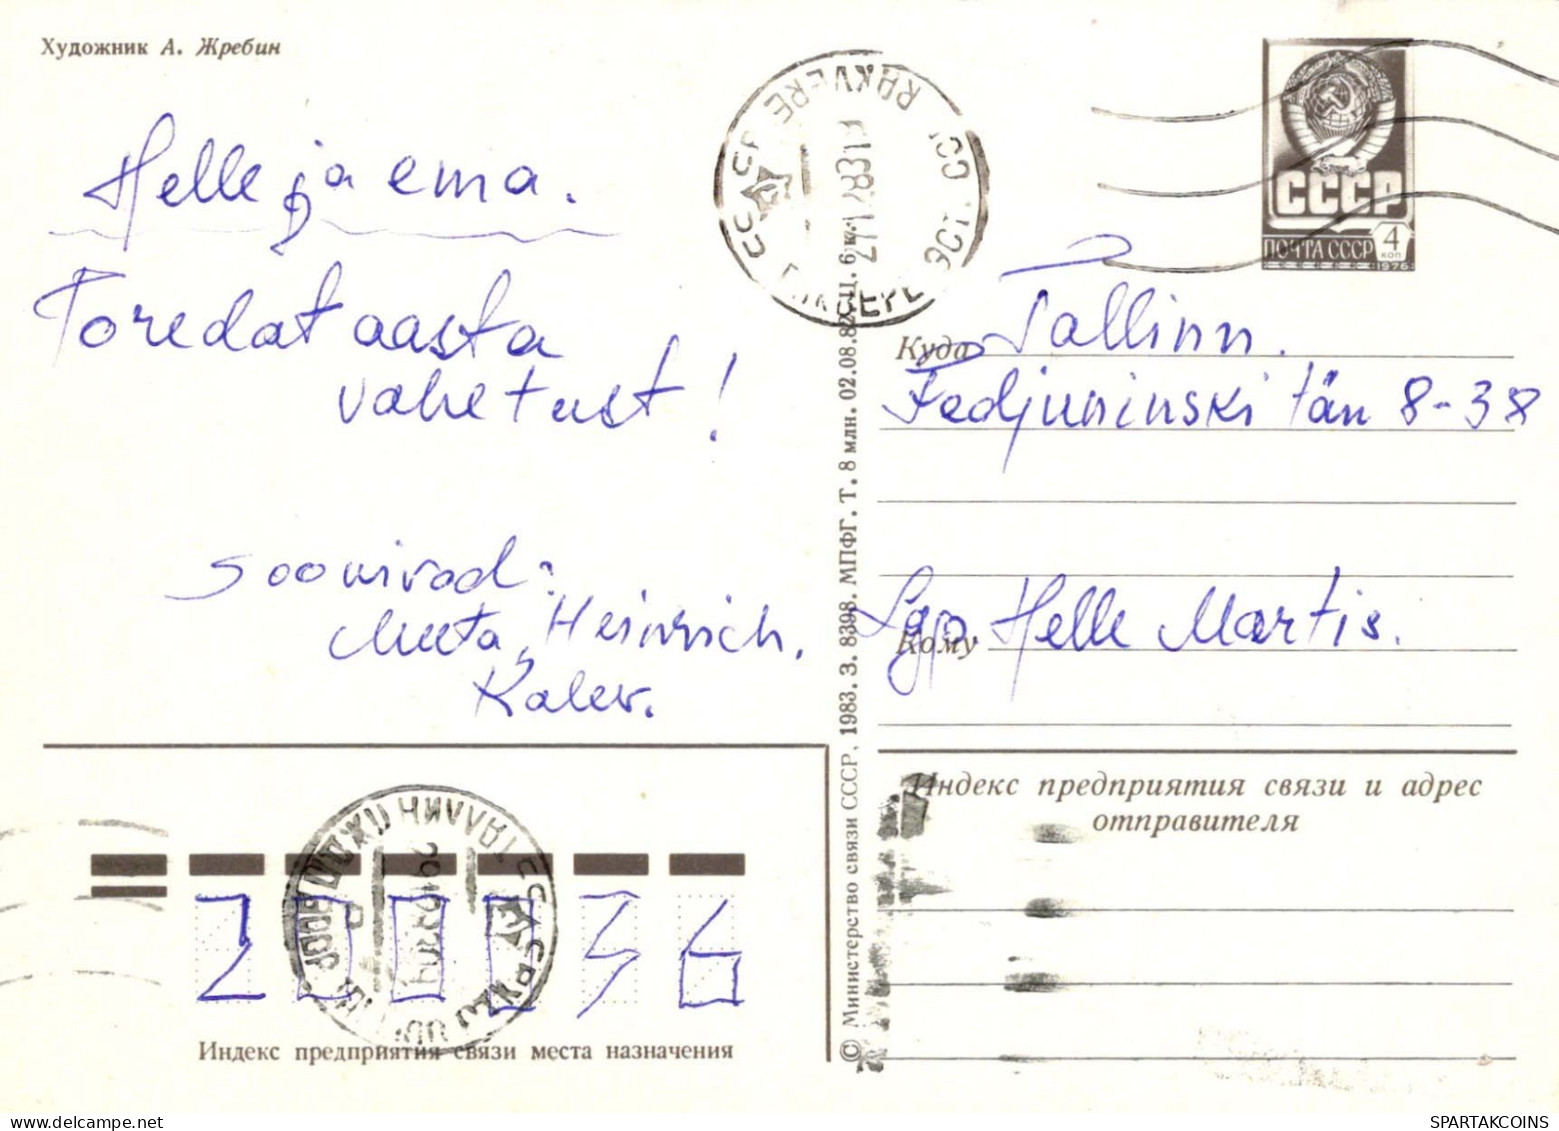 Художник А. Жребин
Helle ja ema.
Toredat aasta
vahetust!
soovivad:
Meeta, Heinrich,
Kalev.
RAKVERE
СССР
ПОЧТА СССР 4
коп
1976
Куда Tallinn.
Fedjuninski tän 8-38
Кому Lgp. Helle Martis.
Индекс предприятия связи и адрес
отправителя
© Министерство связи СССР. 1983. З. 8398. МПФГ. Т. 8 млн. 02.08.82. Ц. 6 к.
ТАЛЛИН
200036
Индекс предприятия связи места назначения
SPARTAKCOINS